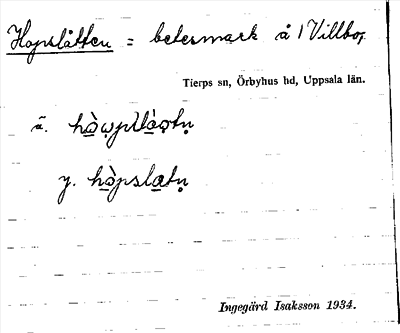 Hopslåtten = betesmark å 1 Villbo,
Tierps sn, Örbyhus hd, Uppsala län.
ä.
y. hòpslatn̥
Ingegärd Isaksson 1934.